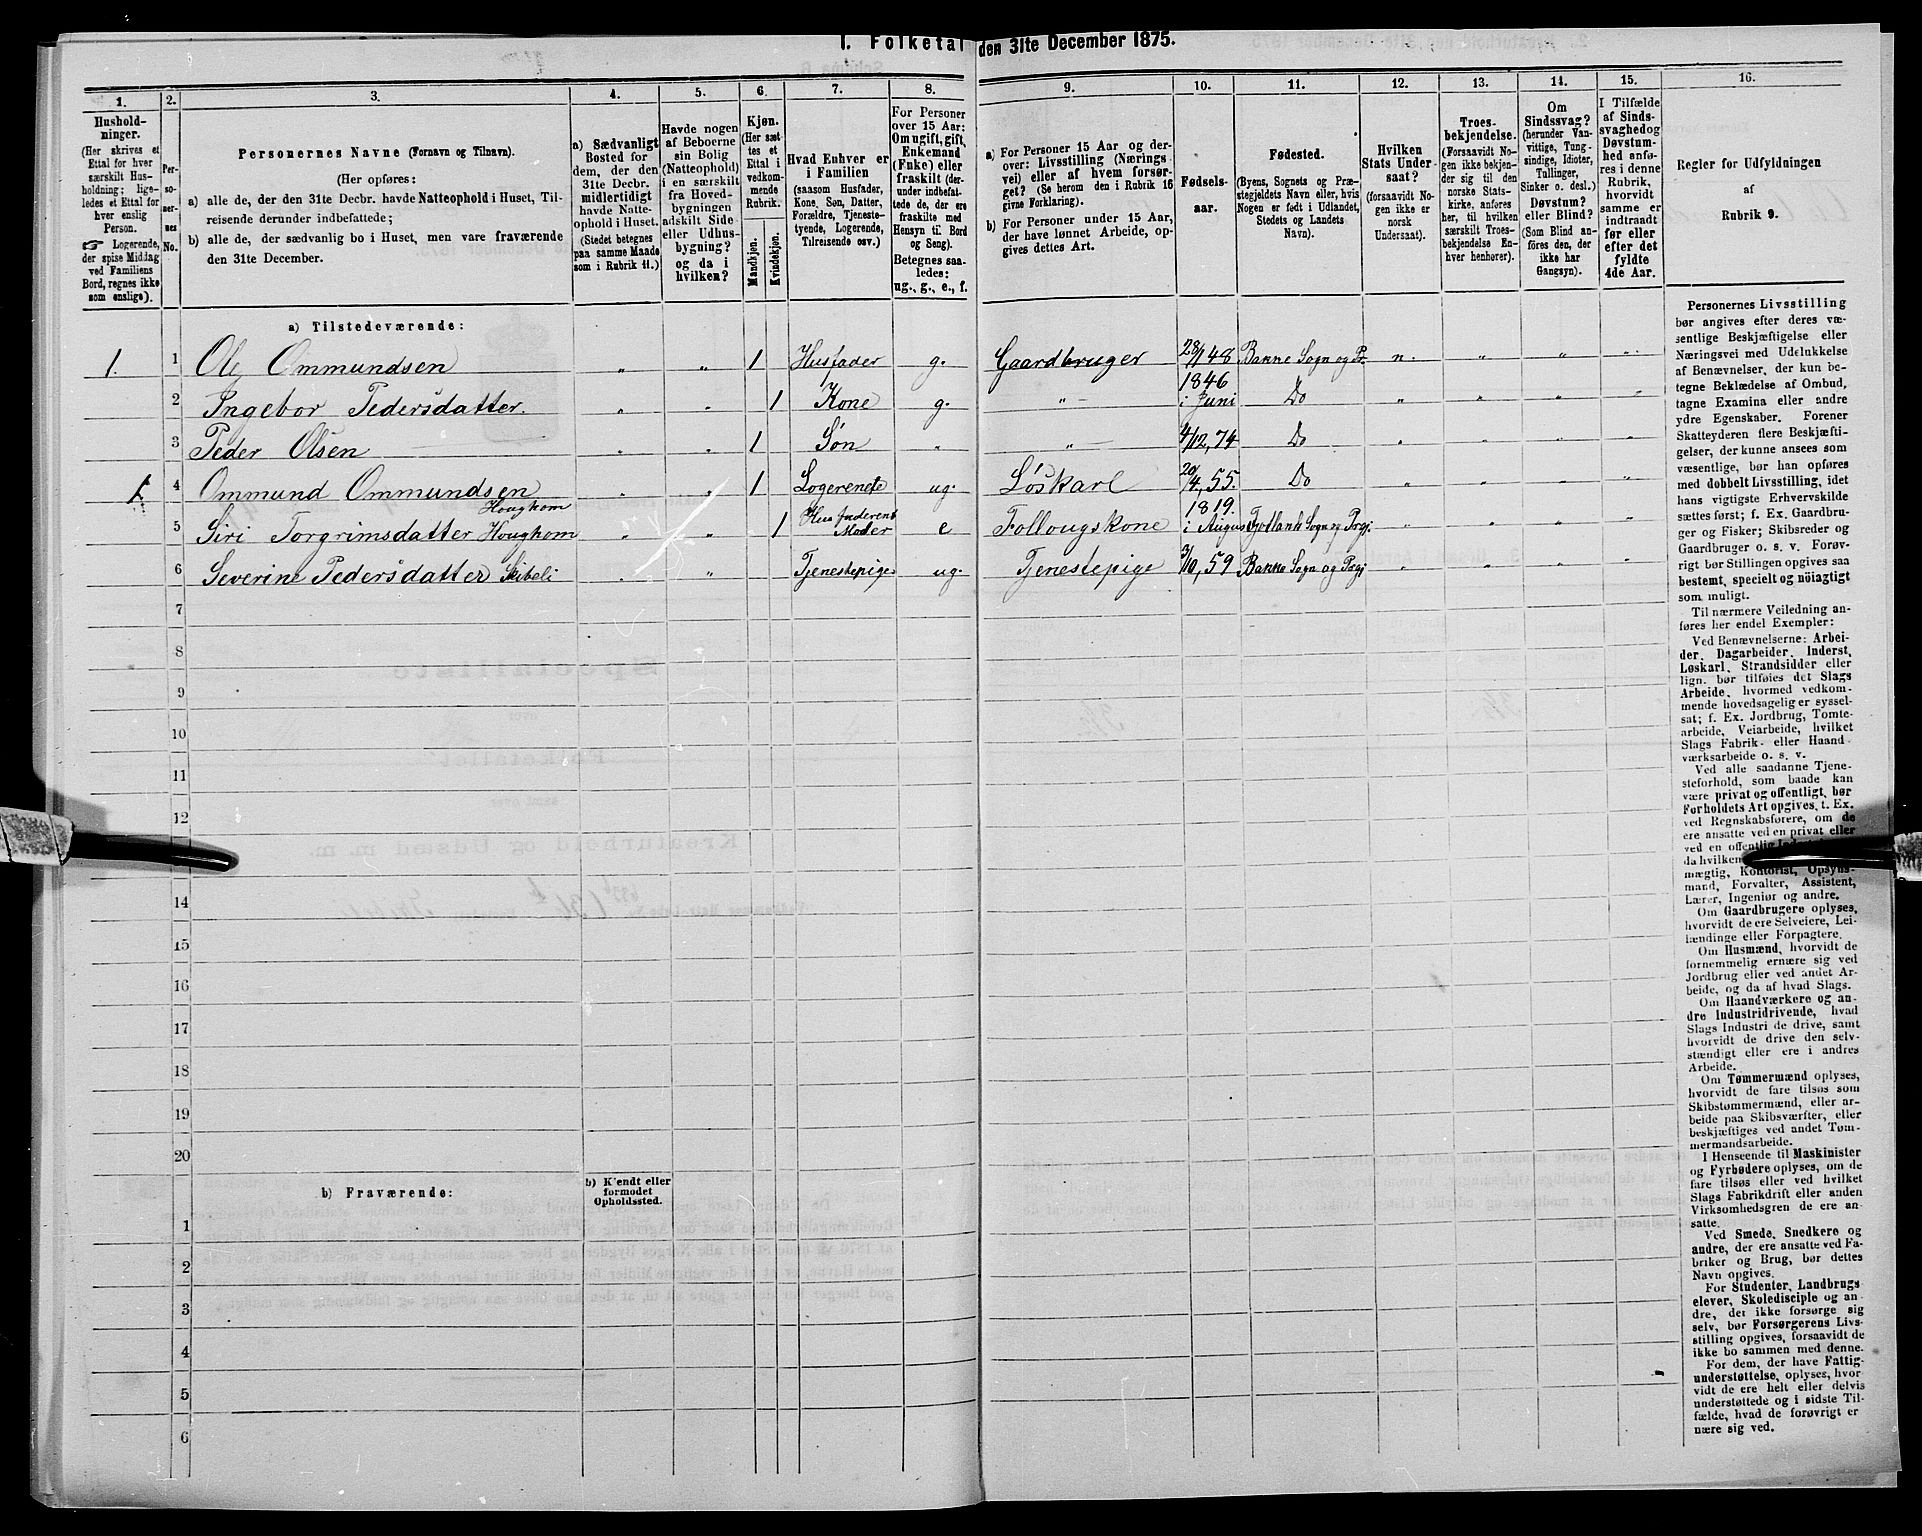 1. Folketal den 31te December 1875.
1. 2. 3. 4. 5. 6. 7. 8. 9. 10. 11. 12. 13. 14. 15. 16.
Hushold-
ninger.
(Her skrives et
Ettal for hver
særskilt Hus-
holdning; lige-
ledes et Ettal for
hver enslig
Person.
☛ Logerende,
der spise Middag
ved Familiens
Bord, regnes ikke
som enslige).
Per-
so-
ner-
nes
No.
Personernes Navne (Fornavn og Tilnavn).
(Her opføres:
a) alle de, der den 31te Decbr. havde Natteophold i Huset, Til-
reisende derunder indbefattede;
b) alle de, der sædvanlig bo i Huset, men vare fraværende
den 31te December.
a) Sædvanligt
Bosted for
dem, der den
31te Decbr.
midlertidigt
havde Natte-
ophold i Huset.
(Stedet betegnes
paa samme Maade
som i Rubrik 11.)
Havde nogen
af Beboerne
sin Bolig
(Natteophold)
i en særskilt
fra Hoved-
bygningen
adskilt Side-
eller Udhus-
bygning?
og da i
hvilken?
Kjøn.
(Her sæt-
tes et
Ettal i
vedkom-
mende
Rubrik.
Mandkjøn.
Kvindekjøn.
Hvad Enhver er
i Familien
(saasom Husfader,
Kone, Søn, Datter,
Forældre, Tjeneste-
tyende, Logerende,
Tilreisende osv.)
For Personer
over 15 Aar:
Om ugift, gift,
Enkemand
(Enke) eller
fraskilt (der-
under indbefat-
tede de, der ere
fraskilte med
Hensyn til Bord
og Seng).
Betegnes saa-
ledes:
ug., g., e., f.
a) For Personer 15 Aar og der-
over: Livsstilling (Nærings
vei) eller af hvem forsør-
get? (Se herom den i Rubrik 16
givne Forklaring).
b) For Personer under 15 Aar,
der have lønnet Arbeide, op-
gives dettes Art.
Fødsels-
aar.
Fødested.
(Byens, Sognets og Præ-
stegjeldets Navn eller, hvis
Nogen er født i Udlandet,
Stedets og Landets
Navn).
Hvilken
Stats Under-
saat?
(forsaavidt No-
gen ikke er
norsk
Undersaat).
Troes-
bekjendelse.
(Forsaavidt No-
gen ikke bekjen-
der sig til den
norske Stats-
kirke, anføres
her, til hvilken
særskilt Troes-
bekjendelse En-
hver henhører).
Om
Sindssvag?
(herunder Van-
vittige, Tung-
sindige, Idioter,
Tullinger,
Sinker o. desl.)
Døvstum?
eller Blind?
(Som Blind an-
føres den, der
ikke har
Gangsyn).
I Tilfælde
af Sinds-
svaghed og
Døvstum-
hed anfø-
res i denne
Rubrik,
hvorvidt
samme er
indtraadt
før eller
efter det
fyldte
4de Aar.
Regler for Udfyldningen
af
Rubrik 9.
a) Tilstedeværende:
1. 1 Ole Ommundsen " " 1 Husfader g. Gaardbruger 28/1 48 Bakke Sogn og Pr. n. " " "
2 Ingebor Pedersdatter. " " 1 Kone g. " 1846 i Juni Do " " " "
3 Peder Olsen " " 1 Søn " " 4/12, 74 Do " " " "
1. 4 Ommund Ommundsen " " 1 Logerende ug. Løskarl 20/4, 55. Do " " " "
Houghom
5 Siri Torgrimsdatter Houghom " " 1 Husfaderens Moder e Follougskone 1819. i August Fjotland Sogn og Prgj. " " " "
6 Severine Pedersdatter Skibeli " " Tjenestepige ug. Tjenestepige 3/10, 59 Bakke Sogn og Prgj " " " "
7
8
9
10
11
12
14
15
16
17
18
19
20
b) Fraværende:
b) Kjendt eller
formodet
Opholdssted.
1
2
3
4
5
6
Personernes Livsstilling
bør angives efter deres væ-
sentlige Beskjæftigelse eller
Næringsvei med Udelukkelse
af Benævnelser, der kun be-
tegne Beklædelse af Ombud,
tagne Examina eller andre
ydre Egenskaber. Forener
Skatteyderen flere Beskjæfti-
gelser, der kunne ansees som
væsentlige, bør han opføres
med dobbelt Livsstilling, idet
hans vigtigste Erhvervskilde
sættes først; f. Ex. Gaardbru-
ger og Fisker; Skibsreder og
Gaardbruger o. s. v. Forøv-
rigt bør Stillingen opgives saa
bestemt, specielt og nöiagtigt
som muligt.
Til nærmere Veiledning an-
føres her endel Exempler:
Ved Benævnelserne: Arbei-
der, Dagarbeider, Inderst,
Løskarl, Strandsidder eller
lign. bør tilføies det Slags
Arbeide, hvormed vedkom-
mende hovedsagelig er syssel-
sat; f. Ex. Jordbrug, Tomte-
arbeide, Veiarbeide, hvilket
Slags Fabrik- eller Haand-
værksarbeide o. s. v.
Ved alle saadanne Tjene-
steforhold, som baade kan
være privat og offentligt, bør
Forholdets Art opgives, t. Ex.
ved Regnskabsførere, om de
ere ansatte ved en privat eller
ved en offentlig
da hvilken
mægtig, Kontorist, Opsyns-
mand, Forvalter, Assistent,
Lærer, Ingeniør og andre.
Om Gaardbrugere oplyses,
hvorvidt de ere Selveiere, Lei-
lændinge eller Forpagtere.
Om Husmænd, hvorvidt de
fornemmelig ernære sig ved
Jordbrug eller ved andet Ar-
beide, og da af hvad Slags.
Om Haandværkere og an-
dre Industridrivende, hvad
Slags Industri de drive, samt
hvorvidt de drive den selv-
stændigt eller ere i andres
Arbeide.
Om Tømmermænd oplyses,
hvorvidt de fare tilsøs som
Skibstømmermænd, eller ar-
beide paa Skibsværfter, eller
beskjæftiges ved andet Tøm-
mermandsarbeide.
I Henseende til Maskinister
og Fyrbødere oplyses, om de
fare tilsøs eller ved hvilket
Slags Fabrikdrift eller anden
Virksomhedsgren de ere an-
satte.
Ved Smede, Snedkere og
andre, der ere ansatte ved Fa-
briker og Brug, bør dettes
Navn opgives.
For Studenter, Landbrugs
elever, Skoledisciple og an-
dre, der ikke forsørge sig
selv, bør Forsørgerens Livs-
stilling opgives, forsaavidt de
ikke bo sammen med denne.
For dem, der have Fattig-
understøttelse, oplyses, hvor-
vidt de ere helt eller delvis
understøttede og i sidste Til-
fælde, hvad de forøvrigt er-
nære sig ved.